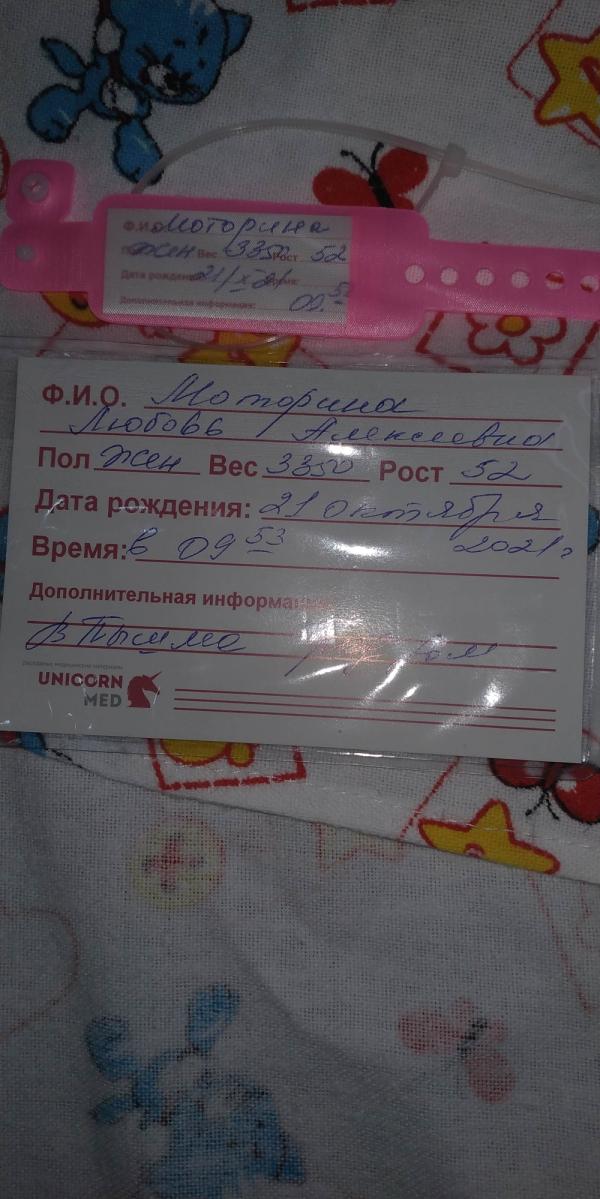 Ф.И.О. Моторина
Пол жен Вес 3350 Рост 52
Дата рождения 21/X-21 Время:
Дополнительная информация: 09.53
Ф.И.О. Моторина
Любовь Алексеевна
Пол жен Вес 3350 Рост 52
Дата рождения: 21 октября
Время: в 09 53 2021 г
Дополнительная информация:
В Пышма
расходные медицинские материалы
UNICORN
MED